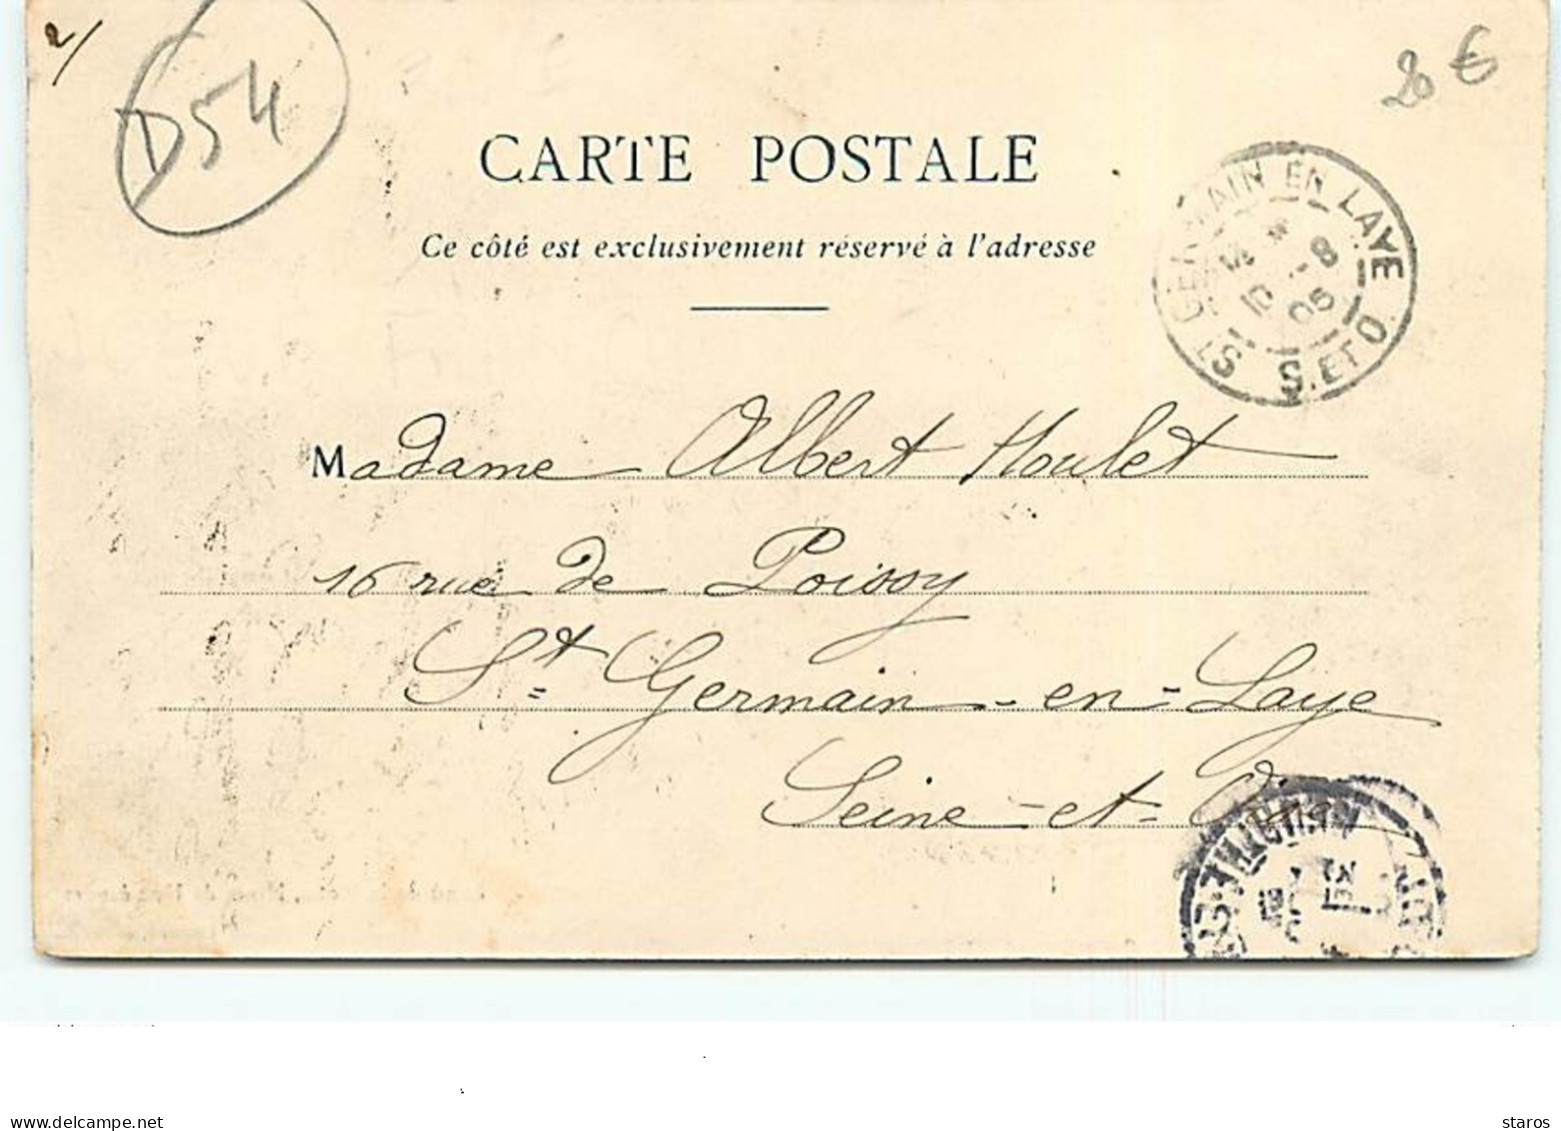 2/
D54
20 €
CARTE POSTALE
Ce côté est exclusivement réservé à l'adresse
ST GERMAIN EN LAYE
8
10
05
S. ET O.
Madame Albert Houlet
16 rue de Poissy
St Germain-en-Laye
Seine-et-Oise
www.delcampe.net
staros